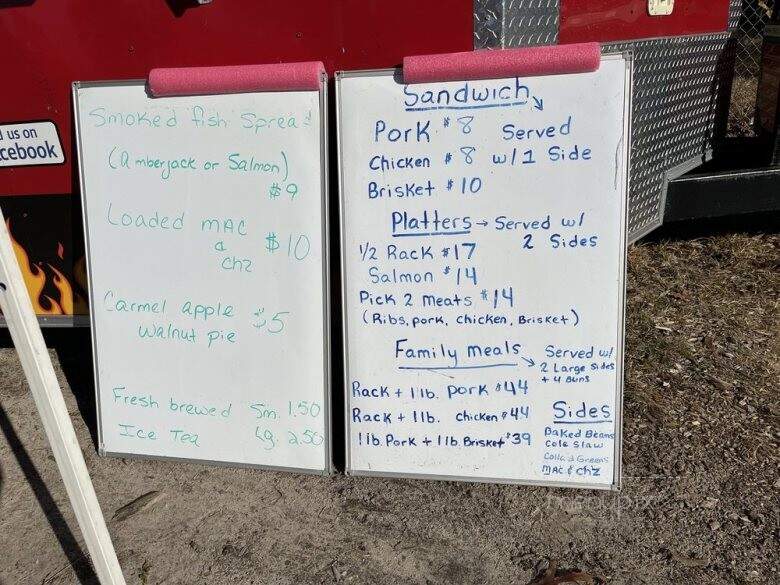 d us on
cebook
Smoked fish Spread
(Amberjack or Salmon)
$9
Loaded MAC
&
chz
$10
Carmel apple
walnut pie
$5
Fresh brewed Sm. 1.50
Ice Tea Lg. 2.50
Sandwich
Pork $8 Served
Chicken $8 w/1 Side
Brisket $10
Platters → Served w/
2 Sides
1/2 Rack $17
Salmon $14
Pick 2 meats $14
(Ribs, pork, chicken, Brisket)
Family meals
Served w/
2 Large Sides
+ 4 Buns
Rack + 1lb. pork $44
Rack + 1lb. chicken $44
1lb. Pork + 1lb. Brisket $39
Sides
Baked Beans
Cole Slaw
Collard Greens
MAC & ch'z